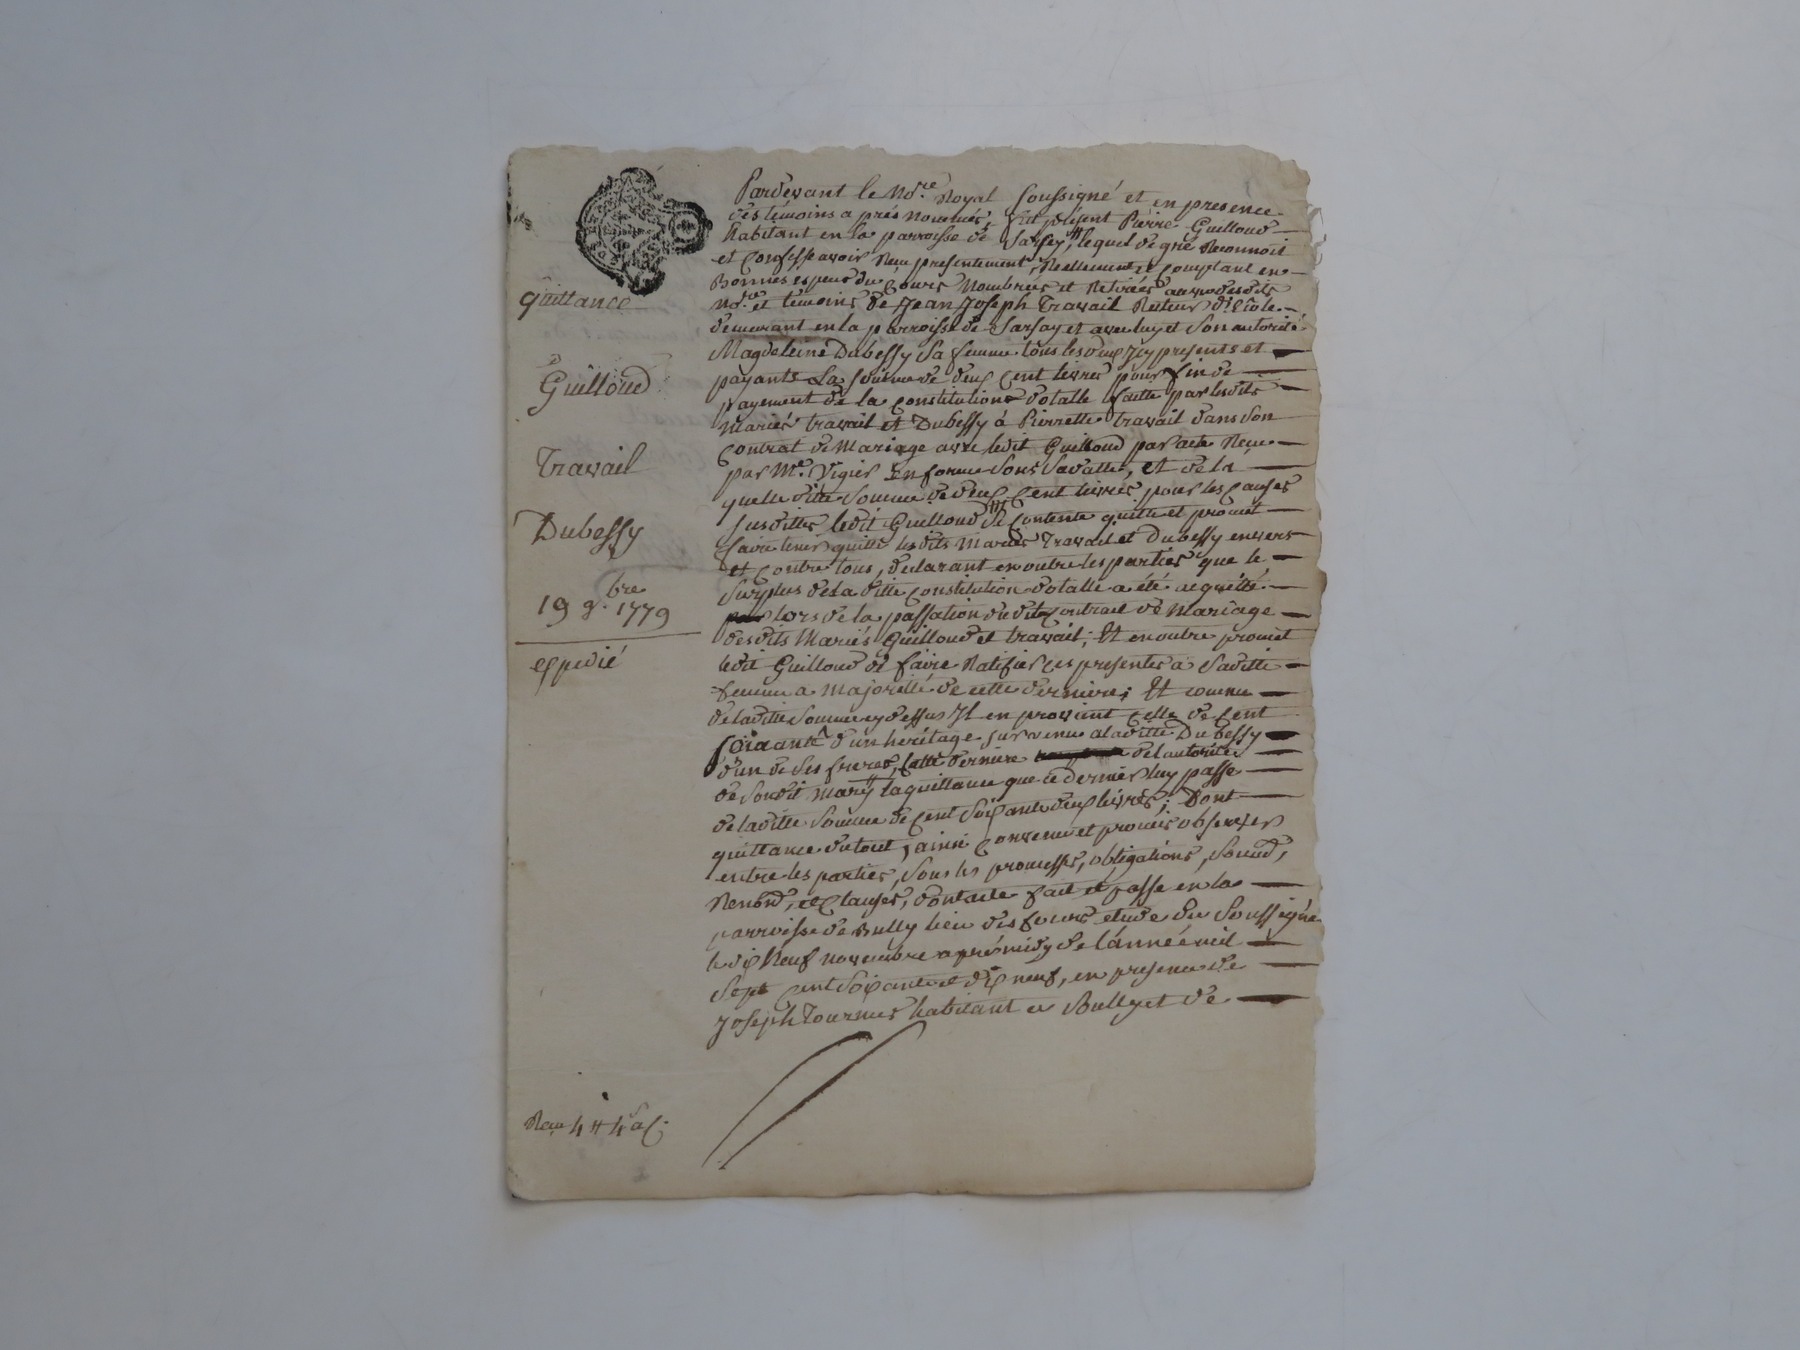 Pardevant le No.re Royal soussigné et en presence
des témoins aprés nommés, fut présent Pierre Guilloud
habitant en la parroisse de Sarsey, lequel de gré Reconnoit
et confesse avoir Reçu presentement, Réellement et comptant en
Bonnes especes du cours Nombrées et Retirées au vû desdits
quittance
No.re et témoins de Jean Joseph Travail Recteur d'Ecole
demeurant en la parroisse de Sarsay et avec luy et Son autorité
Magdeleine Dubessy sa femme tous les deux Icy presents et
Guilloud
payants La somme de deux cent livres pour fin de
payement de la constitution dotalle faitte par lesdits
Mariés travail et Dubessy à Pierrette travail dans son
Contrat de Mariage avec ledit Guilloud par acte Reçu
Travail
par Me. Vigier En forme Sous Savatte, et de la
quelle ditte somme de deux cent livres pour les causes
Dubessy
susdittes ledit Guilloud se contente quitte et promet
faire tenir quitte lesdits Mariés Travail et Dubessy envers
et contre tous, declarant en outre les parties que le
surplus de la ditte constitution dotalle a été acquitté
19 9.bre 1779
lors de la passation dudit contrat de Mariage
desdits Mariés Guilloud et travail; Et en outre promet
expedié
ledit Guilloud de faire Ratifier ces presentes a Saditte
femme a Majorité de cette derniere; Et comme
de laditte somme cy dessus Il en provient celle de cent
soixante d'un heritage survenu a laditte Dubessy
d'un de ses freres, Cette derniere de l'autorité
de Sondit Mary la quittance que ce dernier luy passe
de laditte somme de cent soixante deux livres; Dont
quittance du tout, ainsi convenu et promis observer
entre les parties, sous les promesses, obligations, soumd,
Renond, et clauses, dont acte fait et passé en la
parroisse de Bully lieu des fours etude du soussigné
le dix Neuf novembre aprés midy de l'année mil
Sept cent soixante et dix neuf, en presence de
Joseph Tournier habitant a Bully et de
Reçu 4 ₶ 4 s a C.